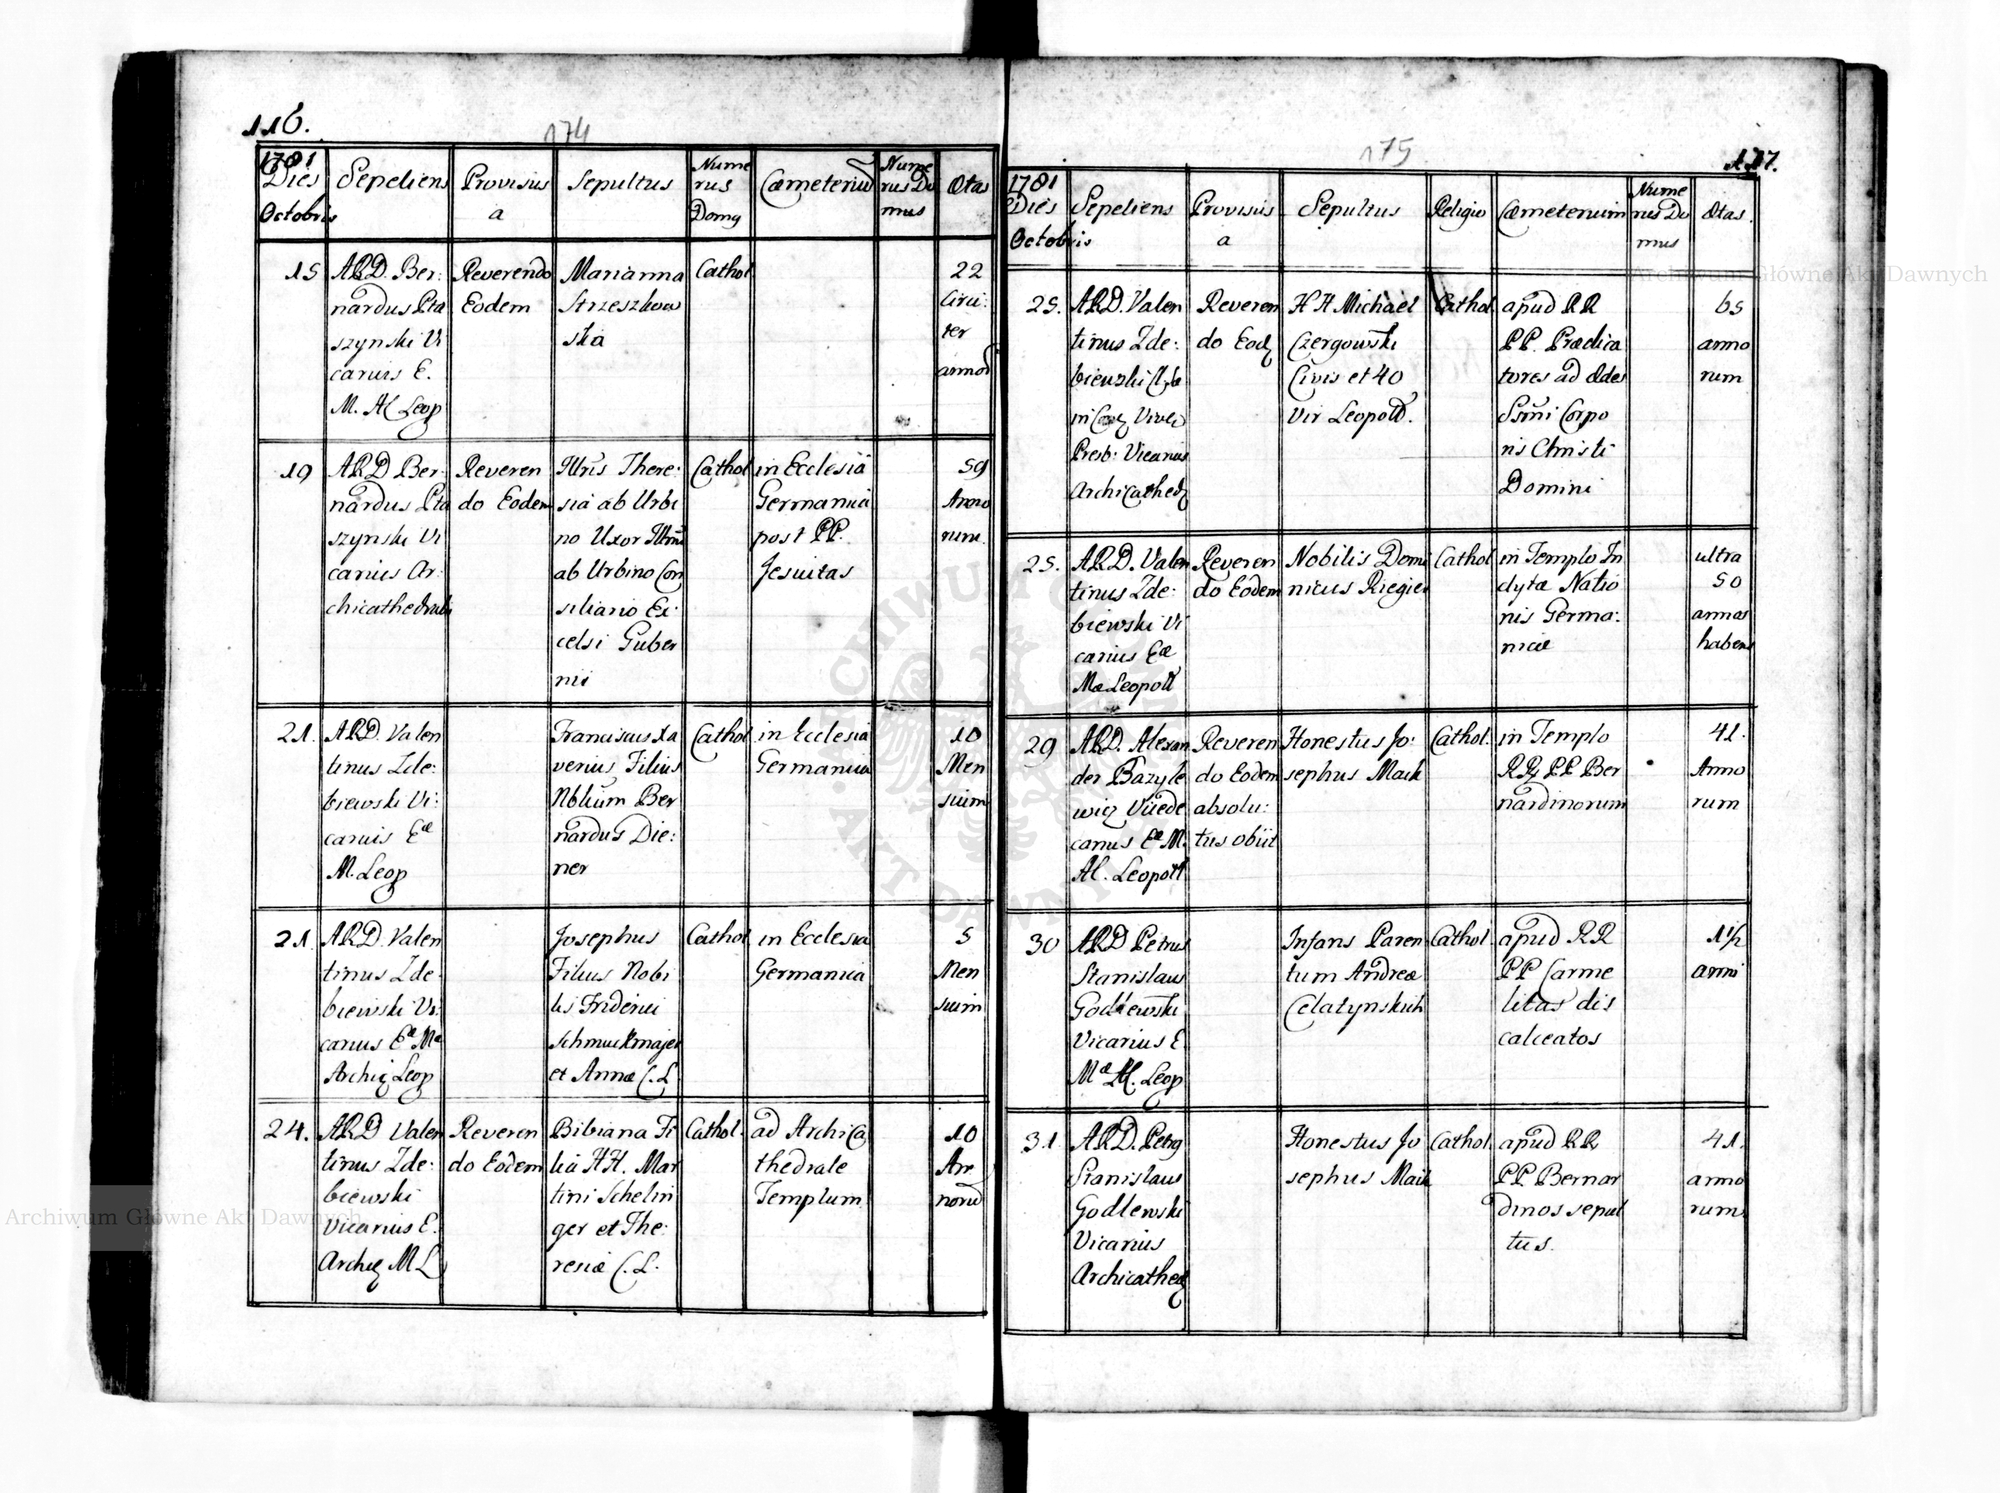 116.
174
1781
Dies
Octobris
Sepeliens
Provisus
a
Sepultus
Nume
rus
Domq
Cœmeteriū
Nume
rus Do
mus
Ætas
15
ARD. Ber:
nardus Pta
szynski Vi
carius E.
M. Al Leop
Reverendo
Eodem
Marianna
Strzeszkow
ska
Cathol
22
Circi:
ter
annoꝝ
19
ARD Ber:
nardus Pta
szynski Vi
carius Ar:
chicathedralis
Reveren
do Eodem
Illris There:
sia ab Urbi
no Uxor Illmi
ab Urbino Con
siliario Ex:
celsi Guber
nii
Cathol
in Ecclesiâ
Germanica
post PP.
Jesuitas
59
Anno
rum.
21.
ARD. Valen
tinus Zde:
biewski Vi:
carius Eæ
M. Leop
Franciscus Xa
verius Filius
Nblium Ber
nardus Die:
ner
Cathol
in Ecclesia
Germanica
10
Men
sium
21.
ARD. Valen
tinus Zde:
biewski Vi:
carius Eæ Mæ
Archiq Leop
Josephus
Filius Nobi
lis Friderici
Schmuckmajer
et Annæ C. L
Cathol
in Ecclesia
Germanica
5
Men
sium
24.
ARD Valen
tinus Zde:
biewski
Vicarius E.
Archiq M L
Reveren
do Eodem
Bibiana Fi
lia HH. Mar
tini Schelin
ger et The:
resiæ C. L.
Cathol.
ad ArchiCa
thedrale
Templum
10
An
norū
175
117.
1781
Dies
Octobris
Sepeliens
Provisus
a
Sepultus
Religio
Cœmeterium
Nume
rus Do
mus
Ætas.
25.
ARD. Valen
tinus Zde:
biewski
Presb: Vicarius
ArchiCathedq
Reveren
do Eodq
HH Michael
Czergowski
Civis et 40
Vir Leopold.
Cathol.
apud RR
PP. Prædica
tores ad Ædes
Ssmi Corpo
ris Christi
Domini
65
anno
rum
25.
ARD. Valen
tinus Zde:
biewski Vi
carius Eæ
Mæ Leopoll
Reveren
do Eodem
Nobilis Domi
nicus Riegier
Cathol
in Templo In
clytæ Natio
nis Germa:
nicæ
ultra
50
annos
habens
29
ARD. Alexan
der Bazyle
wicz Vicede
canus Eæ M.
Al. Leopoll
Reveren
do Eodem
absolu:
tus obiit
Honestus Jo:
sephus Maik
Cathol.
in Templo
RRq PP Ber
nardinorum
41.
Anno
rum
30
ARD Petrus
Stanislaus
Godlewski
Vicarius E.
Mæ Al. Leop
Infans Paren
tum Andreæ
Celatynskich
Cathol
apud RR
PP Carme
litas dis
calceatos
1½
anni
31
ARD. Petrq
Stanislaus
Godlewski
Vicarius
Archicathedq
Honestus Jo
sephus Maik
Cathol
apud RR
PP Bernar
dinos sepul
tus.
41.
anno
rum
Archiwum Główne Akt Dawnych
Archiwum Główne Akt Dawnych
ARCHIWUM GŁÓWNE AKT DAWNYCH